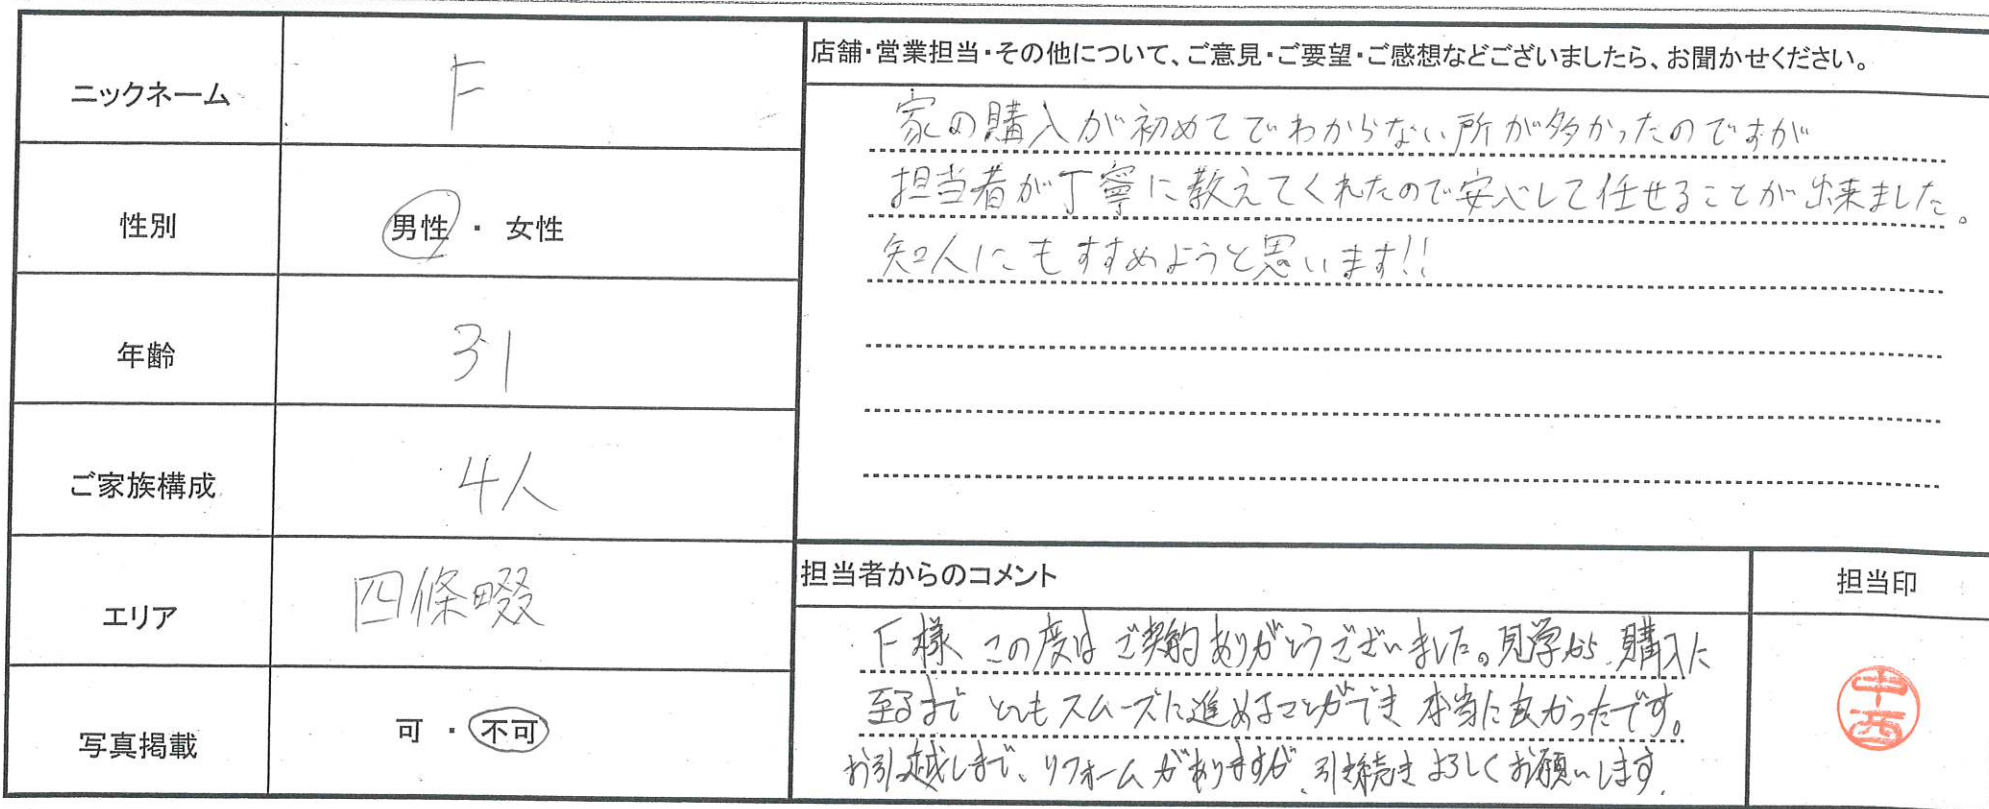 ニックネーム
F
性別
男性 ・ 女性
年齢
31
ご家族構成
4人
エリア
四條畷
写真掲載
可 ・ 不可
店舗・営業担当・その他について、ご意見・ご要望・ご感想などございましたら、お聞かせください。
家の購入が初めてでわからない所が多かったのですが
担当者が丁寧に教えてくれたので安心して任せることが出来ました。
知人にもすすめようと思います!!
担当者からのコメント
F様 この度はご契約ありがとうございました。見学から、購入に
至るまで とてもスムーズに進めることができ 本当に良かったです。
お引越しまで、リフォームがありますが、引き続きよろしくお願いします。
担当印
中西